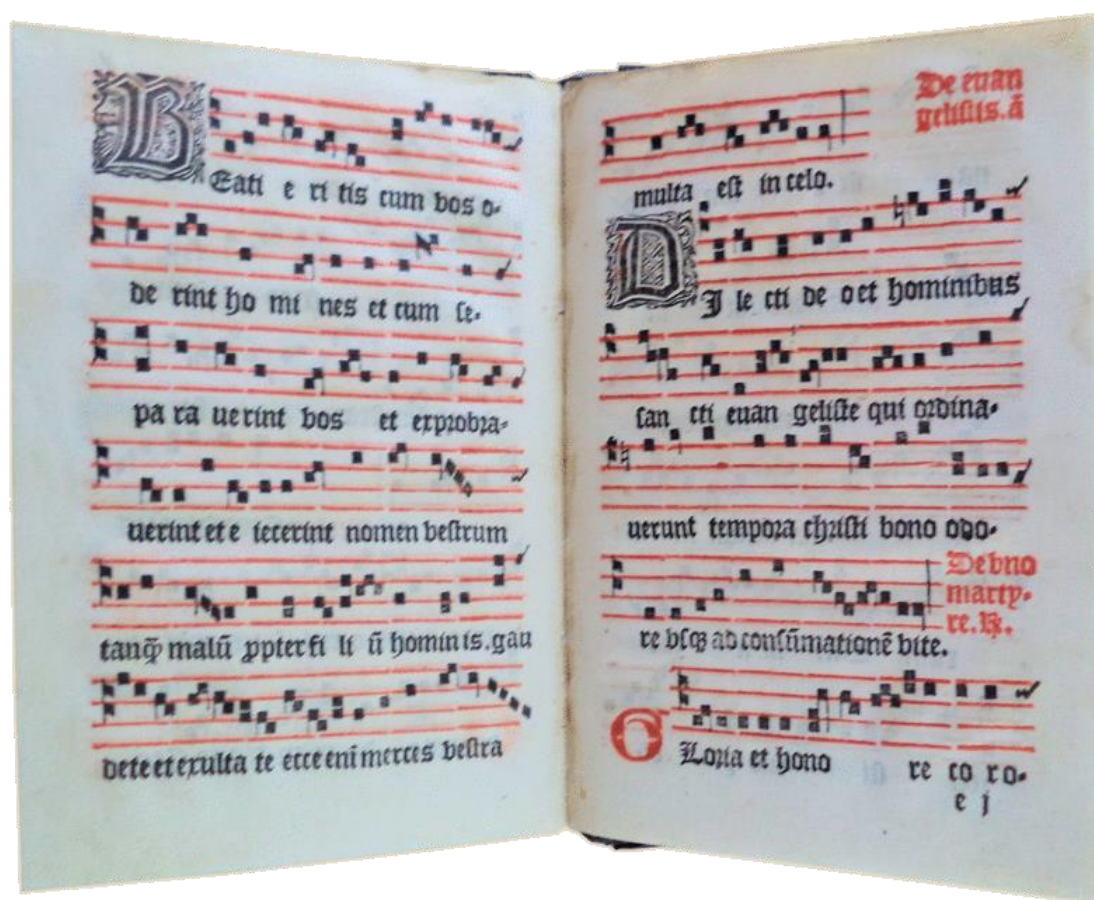 BEati e ri tis cum vos o-
de rint ho mi nes et cum se-
pa ra uerint vos et exprobra-
uerint et e iecerint nomen vestrum
tanq̄ malū ꝓpter fi li ū homin is. gau
dete et exulta te ecce eni merces vestra
De euan
gelistis. ā
multa est in celo.
DJ le cti de o et hominibus
san cti euan geliste qui ordina-
uerunt tempora christi bono odo-
re vsqꝫ ad consūmationē vite.
De vno
marty-
re. ℟.
GLoria et hono re co ro-
e j